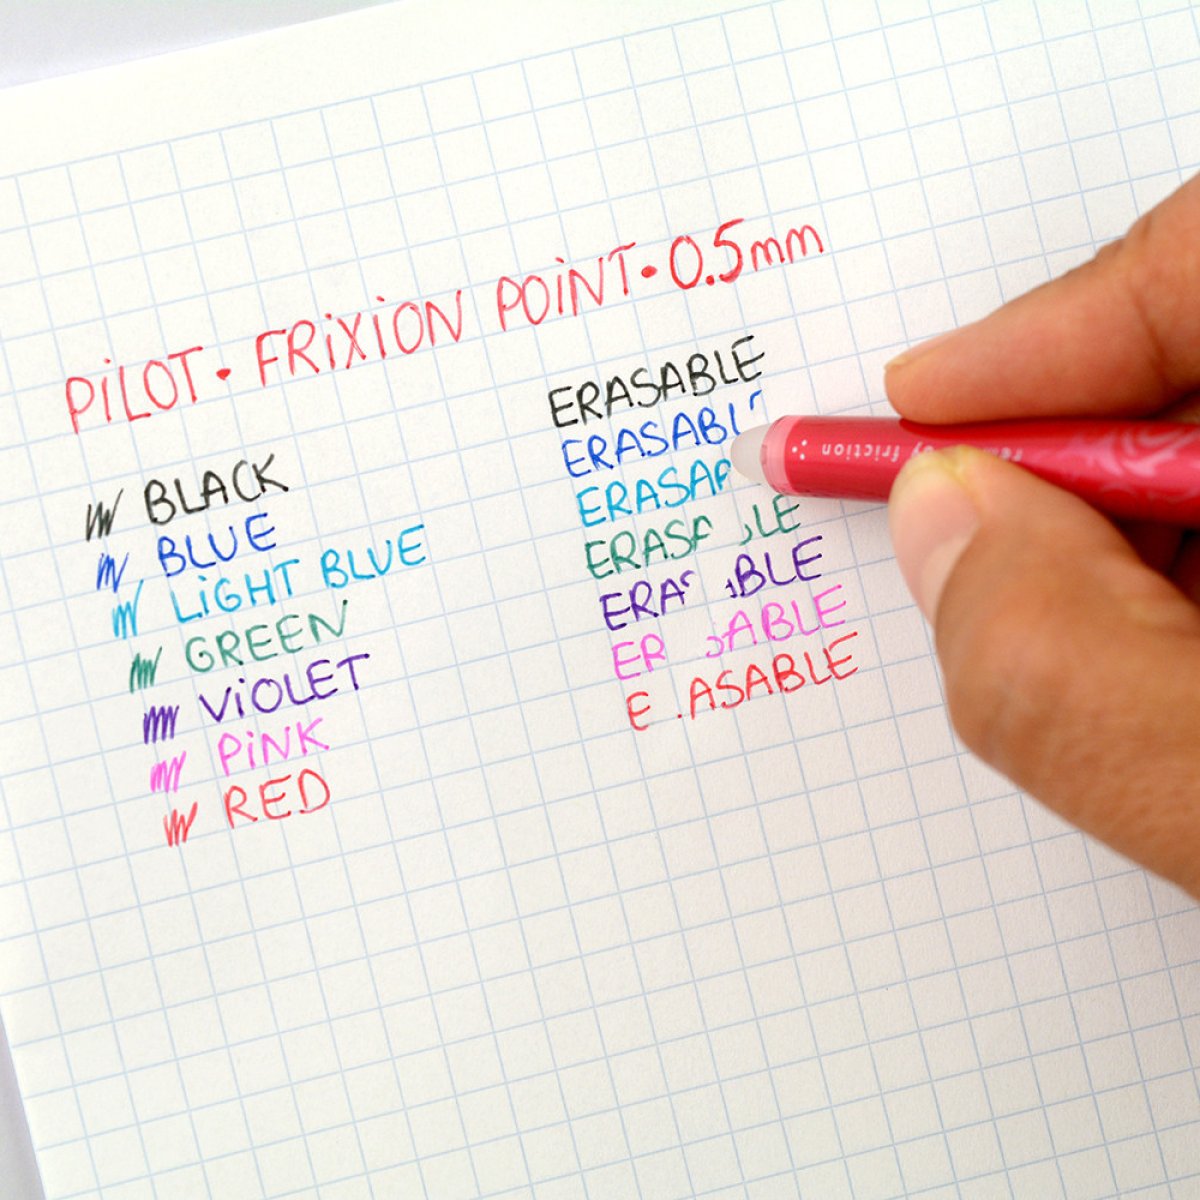 PiLOT · FRiXiON POiNT · 0.5mm
BLACK
BLUE
LiGHT BLUE
GREEN
ViOLET
PiNK
RED
ERASABLE
ERASABL
ERASA
ERASA LE
ERA ABLE
ER ABLE
E ASABLE
by friction